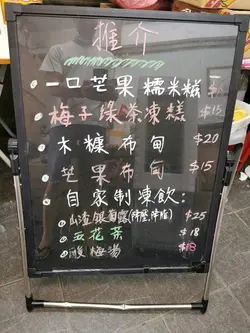 推介
一口芒果糯米糍 $
梅子綠茶凍糕 $15
木糠布甸 $20
芒果布甸 $15
自家制凍飲：
山渣銀菊露 $25
五花茶 $18
酸梅湯 $18